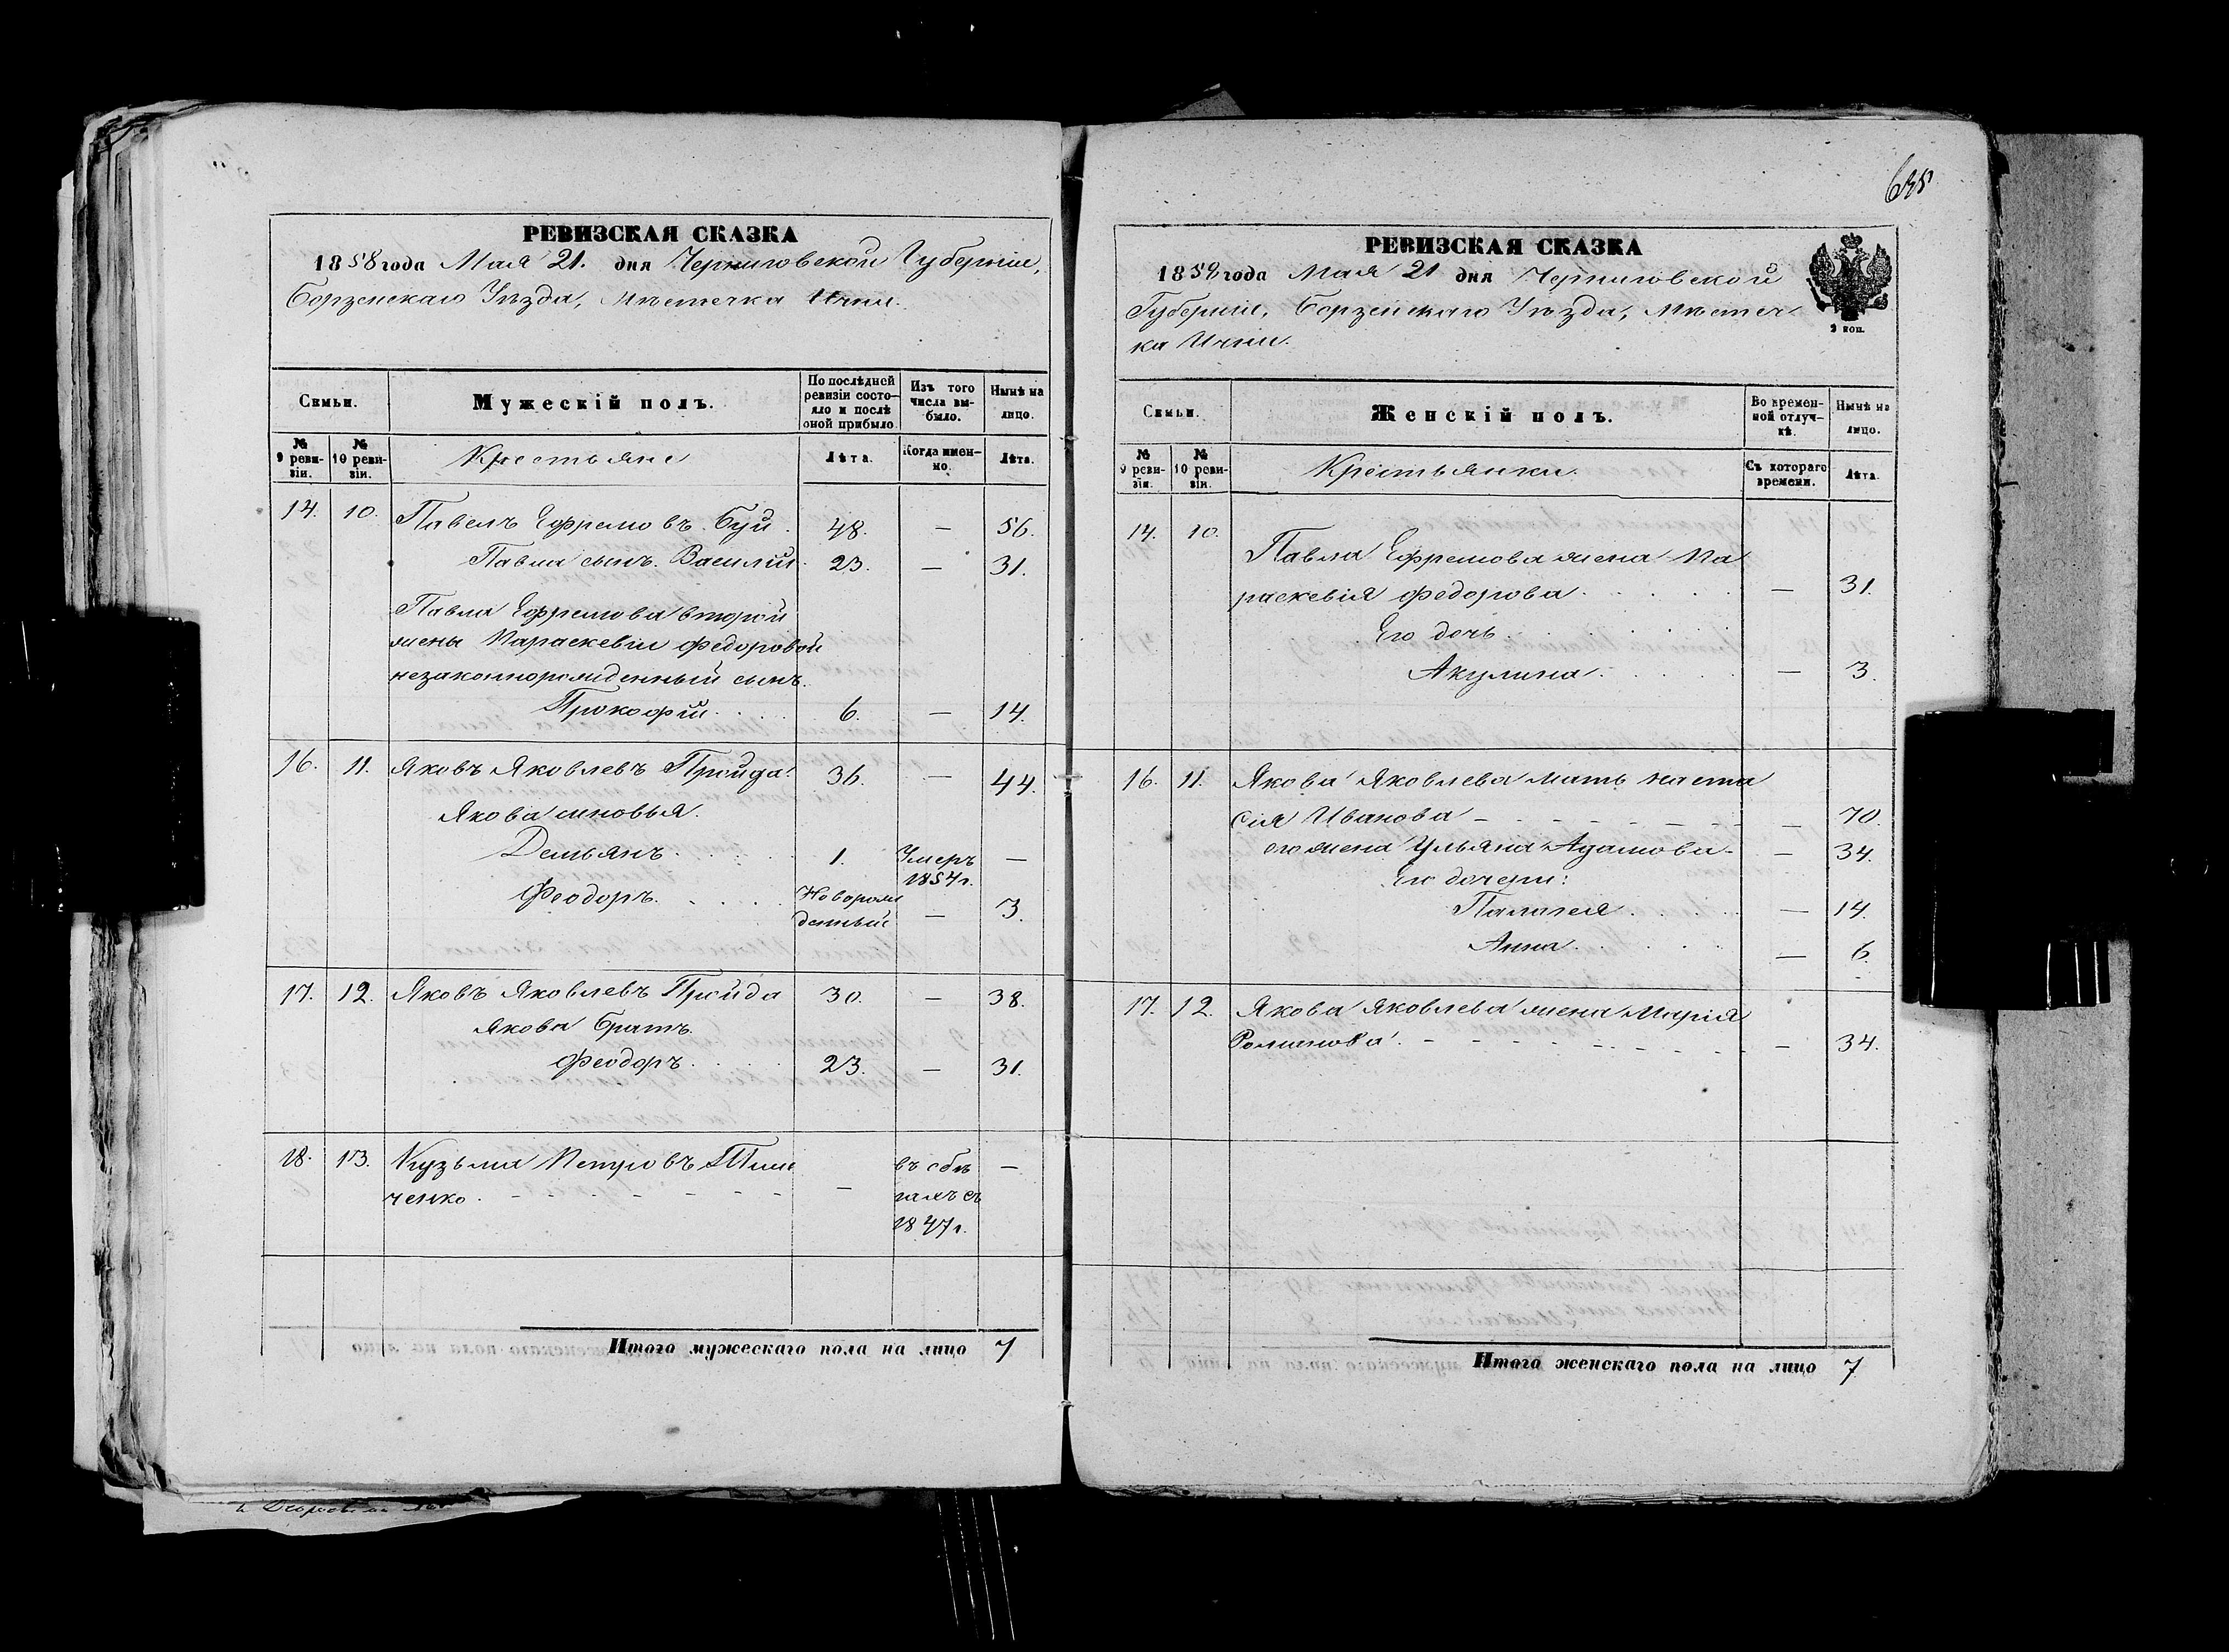 РЕВИЗСКАЯ СКАЗКА
1858 года Мая 21. дня Черниговской Губерніи,
Борзенскаго Уѣзда, Мѣстечка Ични.
Семьи.
Мужескій полъ.
По послѣдней ревизіи состояло и послѣ оной прибыло
Изъ того числа выбыло.
Нынѣ на лицо.
№ 9 ревизіи.
№ 10 ревизіи.
Крестьяне
Лѣта.
Когда именно.
Лѣта.
14. 10. Павелъ Ефремовъ Буй. 48. — 56.
Павла сынъ Василий. 23. — 31.
Павла Ефремова второй
жены Параскевіи Федоровой
незаконнорожденный сынъ
Прокофій 6. — 14.
16. 11. Яковъ Яковлевъ Пройда. 36. — 44.
Якова сыновья.
Демьянъ 1. Умеръ 1854 г. —
Феодоръ. Новорожденный — 3.
17. 12. Яковъ Яковлевъ Пройда 30. — 38.
Якова братъ
Феодоръ 23. — 31.
18. 13. Кузьма Петровъ
ченко — въ сбѣгахъ съ 1847 г. —
Итого мужескаго пола на лицо 7
635
РЕВИЗСКАЯ СКАЗКА
1858 года Мая 21 дня Черниговской
Губерніи, Борзенскаго Уѣзда, Мѣстеч
ка Ични.
9 коп.
Семьи.
Женскій полъ.
Во временной отлучкѣ.
Нынѣ на лицо.
№ 9 ревизіи.
№ 10 ревизіи.
Крестьянки
Съ котораго времени.
Лѣта.
14. 10.
Павла Ефремова жена Па
раскевія Федорова — 31.
Его дочь
Акулина — 3.
16. 11. Якова Яковлева мать Наста
сія Иванова — 70.
его жена Ульяна Адамова — 34.
Его дочери:
Палагея — 14.
Анна — 6.
17. 12. Якова Яковлева жена Марія
Романова — 34.
Итого женскаго пола на лицо 7